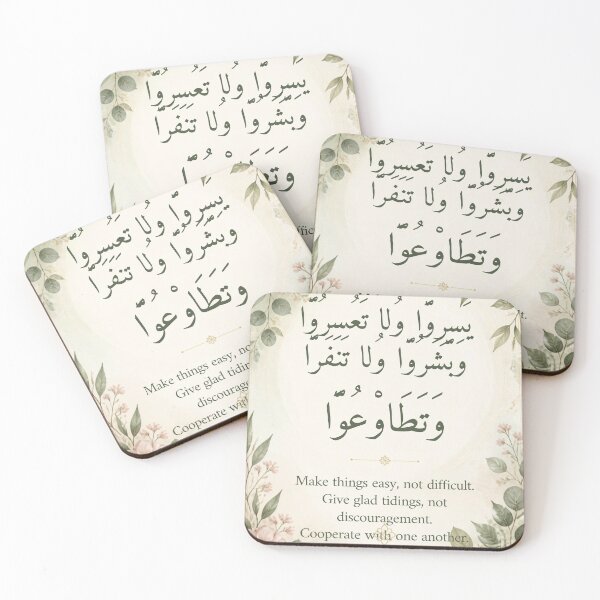 يَسِروّا وَلا تَعُسِرُوا
وَبَشِّرُوا وَلا تَنَفِرَا
يَسِروّا وَلا تَعُسِرُوا
وَبَشِّرُوا وَلا تَنَفِرَا
وَتَطَاوْعُوّا
يَسِروّا وَلا تَعُسِرُوا
وَبَشِّرُوا وَلا تَنَفِرَا
وَتَطَاوْعُوّا
Make things easy,
Give glad
Cooperate with
يَسِروّا وَلا تَعُسِرُوا
وَبَشِّرُوا وَلا تَنَفِرَا
وَتَطَاوْعُوّا
Make things easy, not difficult.
Give glad tidings, not
discouragement.
Cooperate with one another.